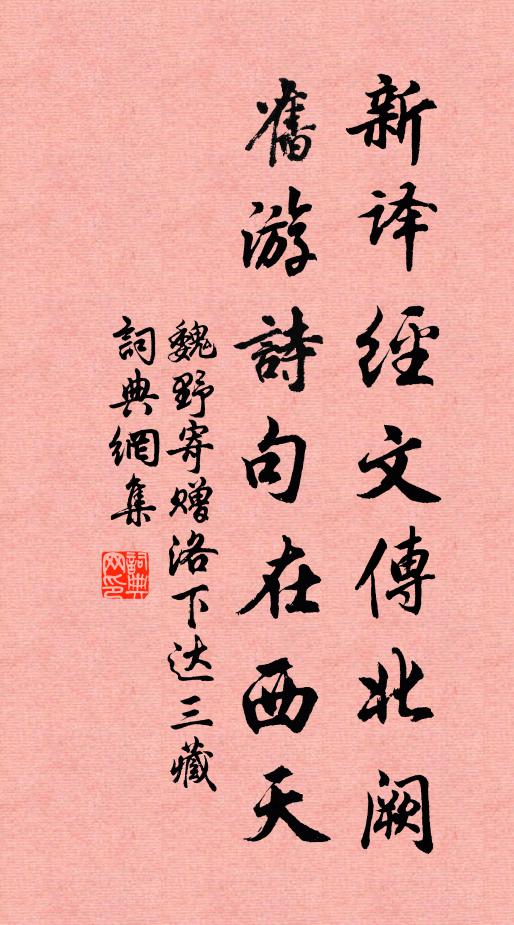 新译經文傳北阙
舊游詩句在西天
魏野寄赠洛下达三藏
詞典網集
詞典网印